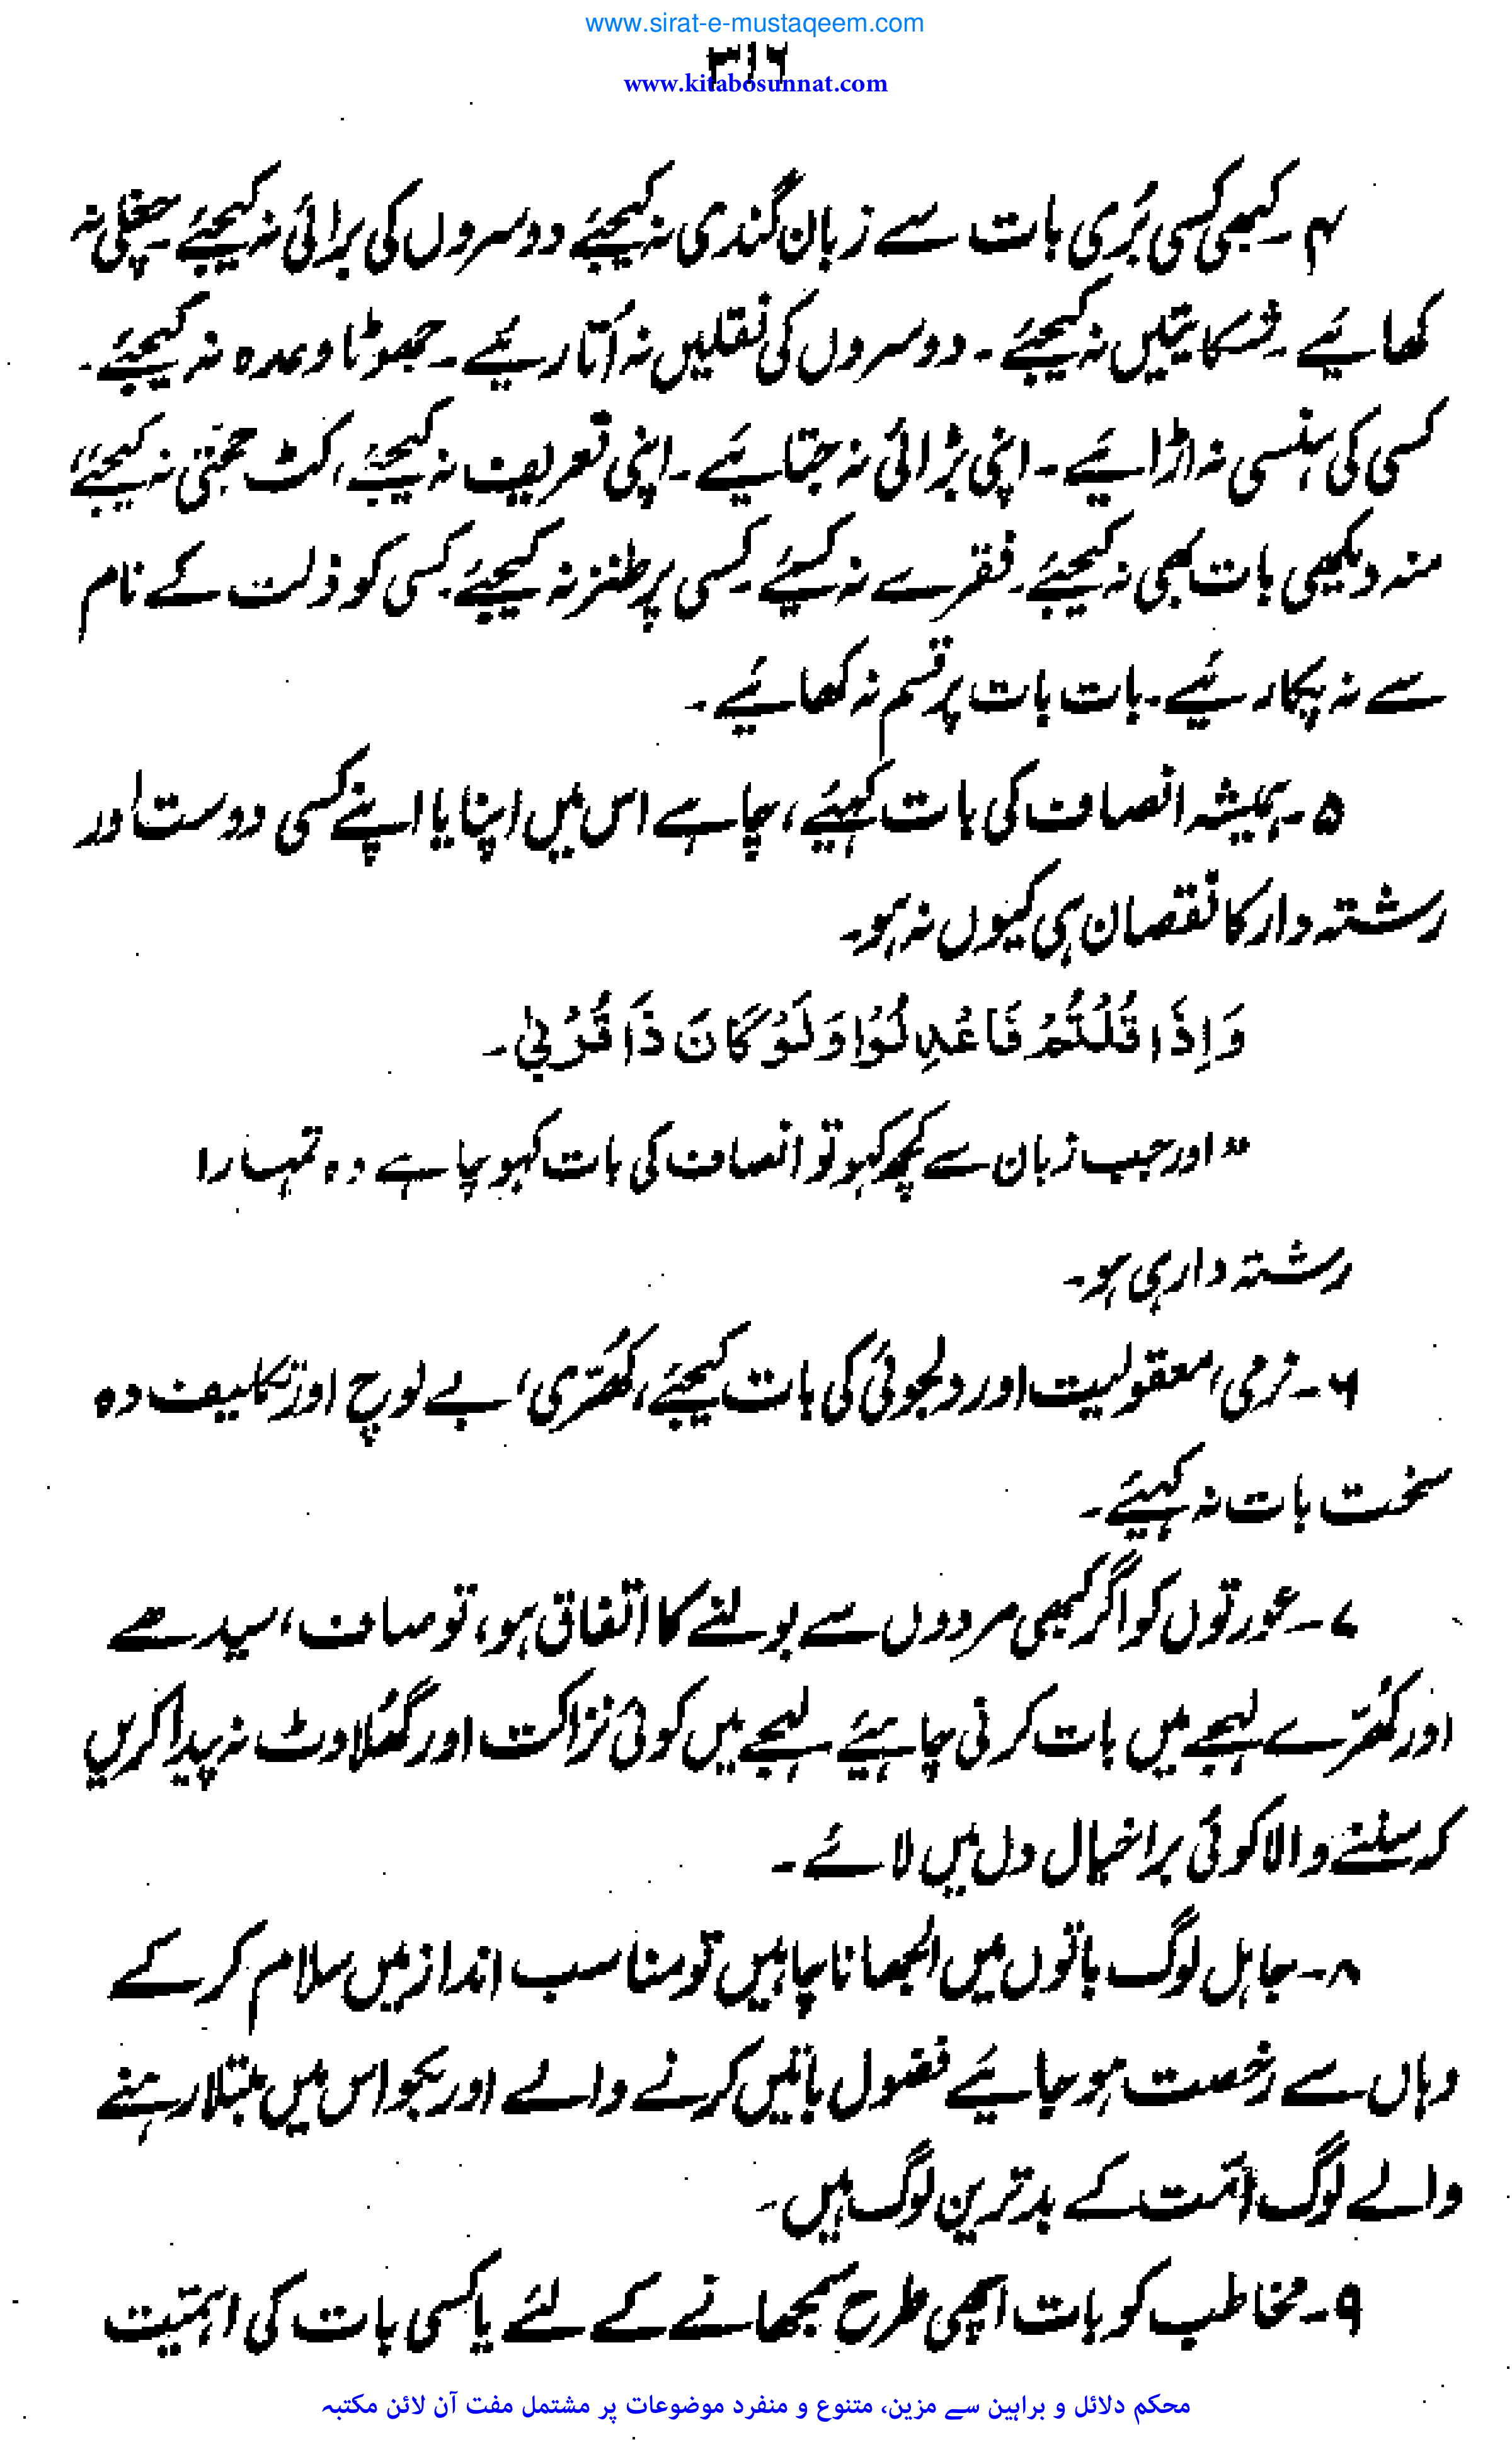 www.sirat-e-mustaqeem.com
۳۱۶
www.kitabosunnat.com
۴۔ کبھی کسی بُری بات سے زبان گندی نہ کیجئے دوسروں کی برائی نہ کیجئے۔ چغلی نہ
کھائیے ۔ شکایتیں نہ کیجئے ۔ دوسروں کی نقلیں نہ اُتاریئے ۔ جھوٹا وعدہ نہ کیجئے۔
کسی کی ہنسی نہ اڑائیے ۔ اپنی بڑائی نہ جتائیے ۔ اپنی تعریف نہ کیجئے، کٹ حجتی نہ کیجئے،
منہ دیکھی بات بھی نہ کیجئے۔ فقرے نہ کسیئے۔ کسی پر طنز نہ کیجئے۔ کسی کو ذلت کے نام
سے نہ پکاریئے۔ بات بات پر قسم نہ کھائیے ۔
۵۔ ہمیشہ انصاف کی بات کہیئے، چاہے اس میں اپنا یا اپنے کسی دوست اور
رشتہ دار کا نقصان ہی کیوں نہ ہو۔
وَاِذَا قُلْتُمْ فَاعْدِلُوْا وَلَوْ كَانَ ذَا قُرْبٰی ۔
” اور جب زبان سے کچھ کہو تو انصاف کی بات کہو چاہے وہ تمہارا
رشتہ دار ہی ہو۔
۶۔ نرمی، معقولیت اور دلجوئی کی بات کیجئے، کھُرّی، بے لوچ اور تکلیف دہ
سخت بات نہ کہیئے ۔
۷۔ عورتوں کو اگر کبھی مردوں سے بولنے کا اتفاق ہو، تو صاف، سیدھے
اور کھُرّے لہجے میں بات کرنی چاہیئے لہجے میں کوئی نزاکت اور گھُلاوٹ نہ پیدا کریں
کہ سننے والا کوئی برا خیال دل میں لائے ۔
۸۔ جاہل لوگ باتوں میں الجھانا چاہیں تو مناسب انداز میں سلام کر کے
وہاں سے رخصت ہو جائیے فضول باتیں کرنے والے اور بکواس میں مبتلا رہنے
والے لوگ اُمّت کے بدترین لوگ ہیں۔
۹۔ مخاطب کو بات اچھی طرح سمجھانے کے لئے یا کسی بات کی اہمیّت
محکم دلائل و براہین سے مزین، متنوع و منفرد موضوعات پر مشتمل مفت آن لائن مکتبہ